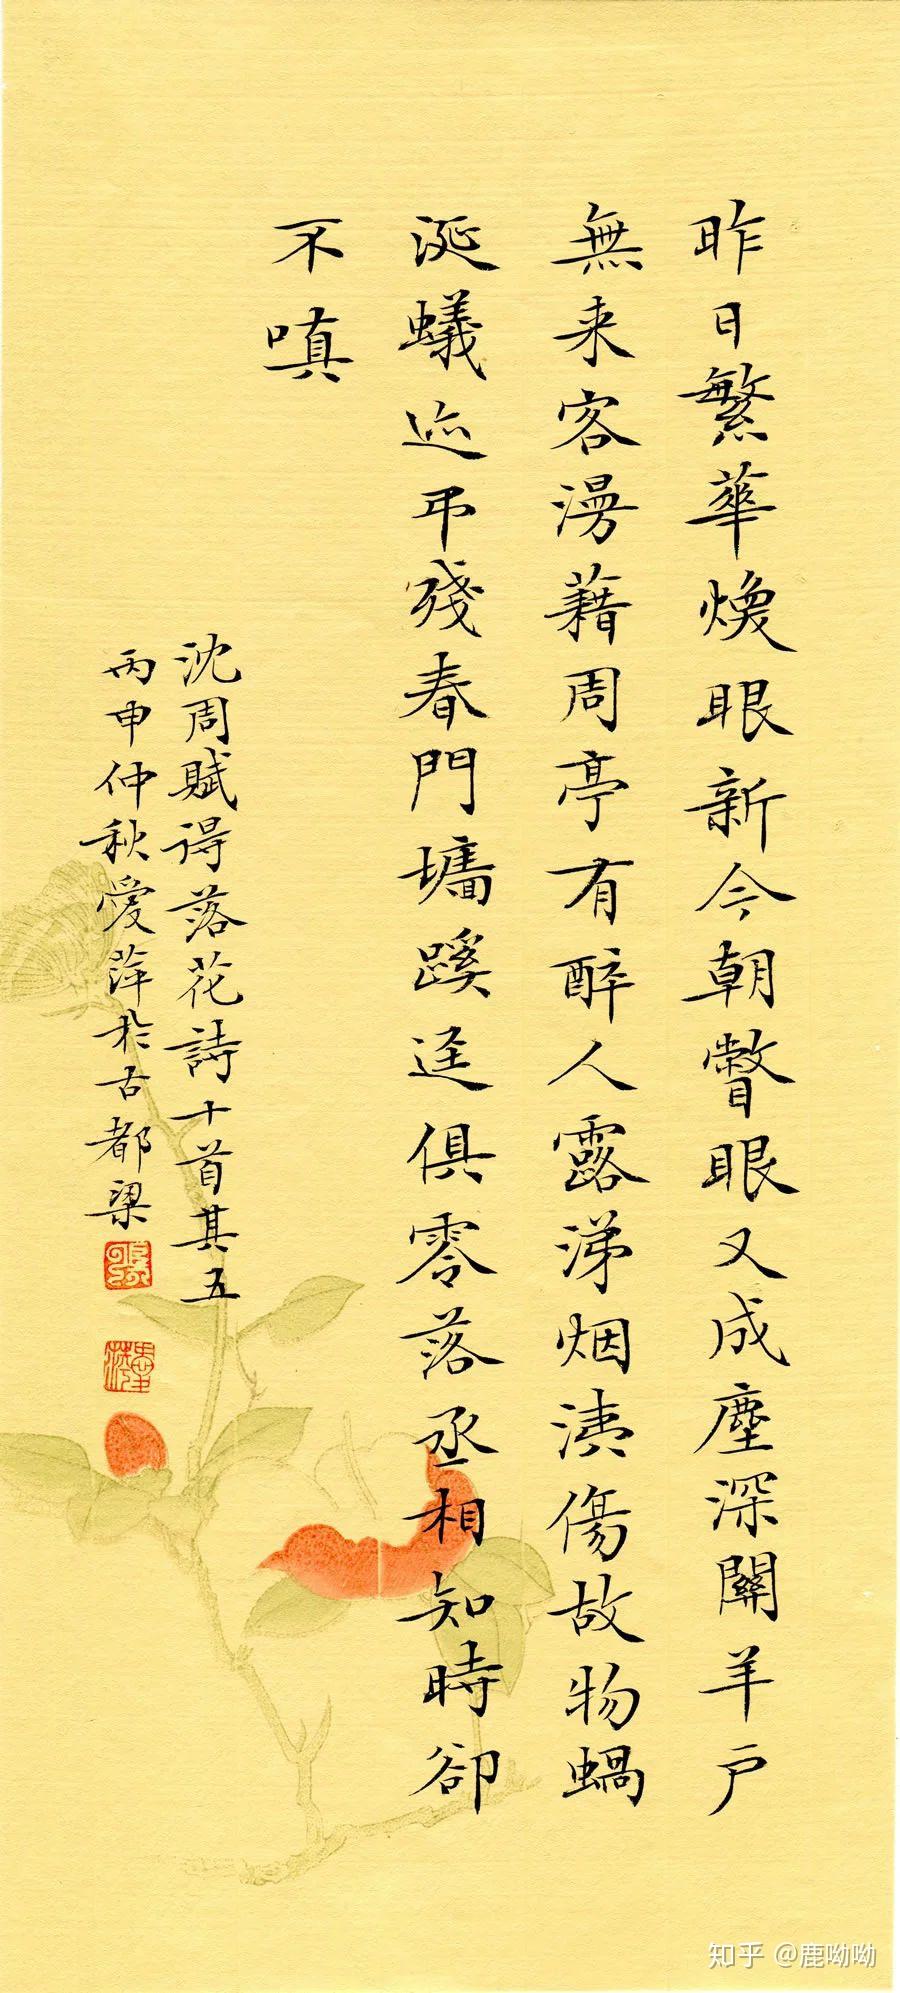 昨日繁華煥眼新今朝瞥眼又成塵深關羊戶
無来客漫藉周亭有醉人露涕烟洟傷故物蝸
涎蟻迹弔殘春門墻蹊逕俱零落丞相知時卻
不嗔
沈周賦得落花詩十首其五
丙申仲秋愛萍於古都梁
知乎 @鹿呦呦